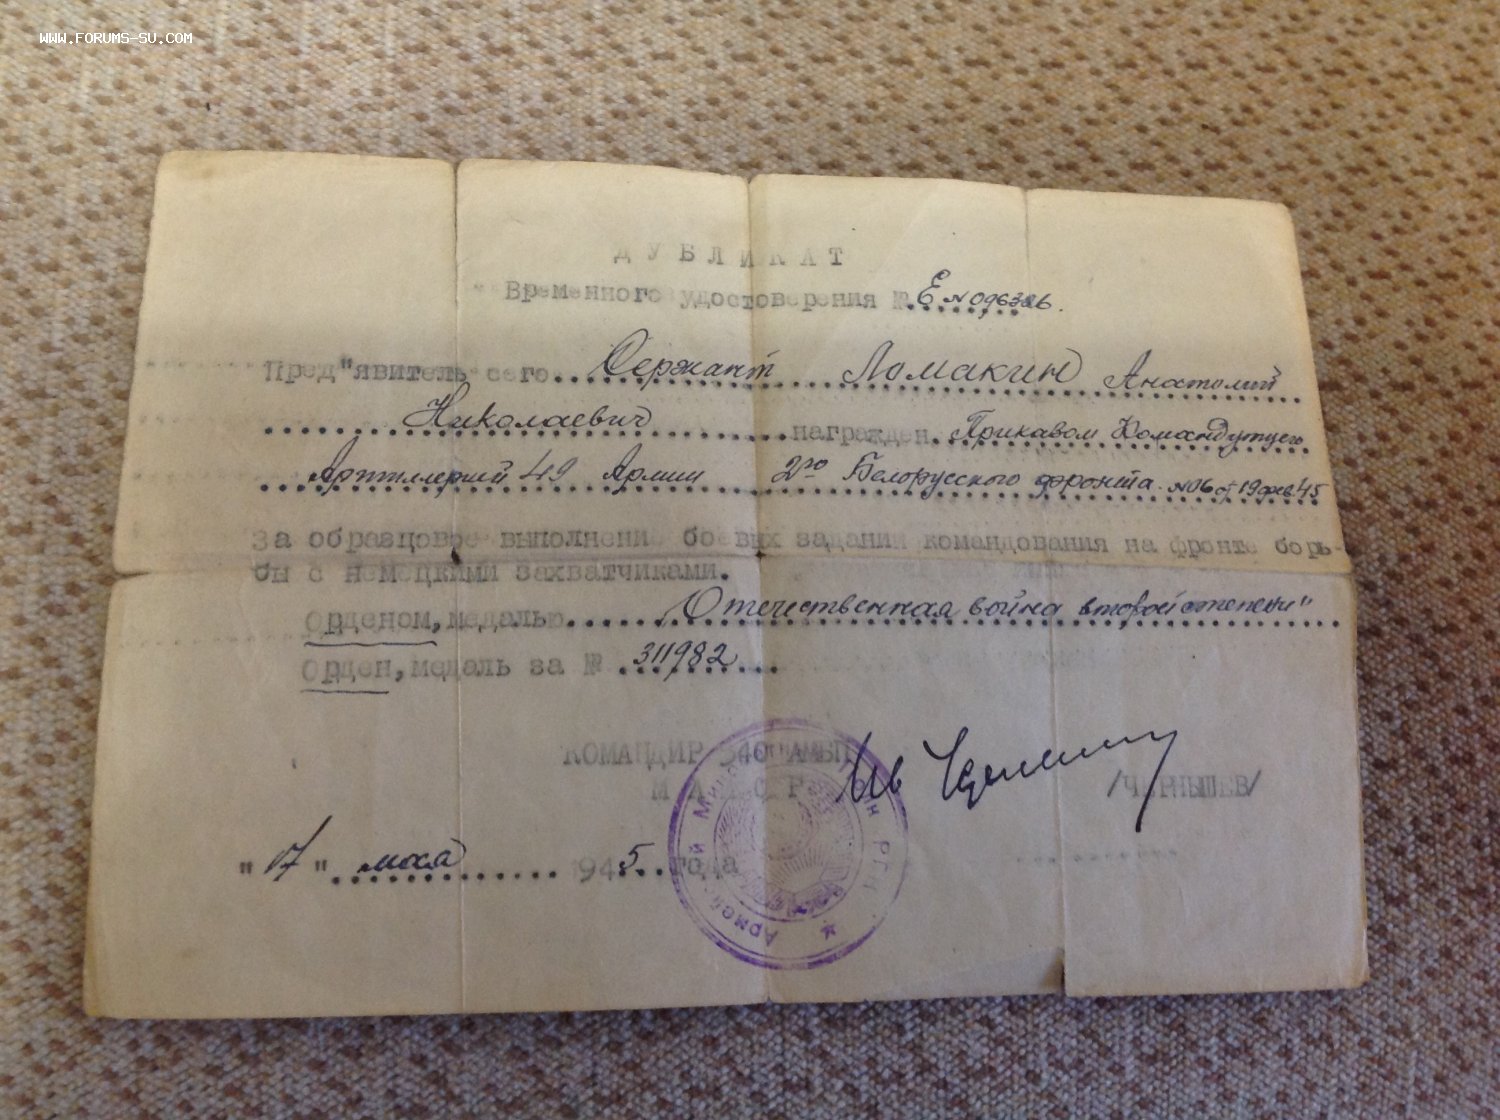 WWW.FORUMS-SU.COM
ДУБЛИКАТ
Временного удостоверения № Е №096386.
Пред"явитель сего... Сержант Ломакин Анатолий
Николаевич награжден Приказом Командующего
Артиллерией 49 Армии 2го Белорусского фронта №06 от 19 фев 45
За образцовое выполнение боевых заданий командования на фронте борь-
бы с немецкими захватчиками.
Орденом, медалью Отечественная война второй степени"
Орден, медаль за № 311982
КОМАНДИР 540 АМЫП
МАЙОР /ЧЕРНЫШЕВ/
"17" мая 1945 года
Армейский Мин РГК